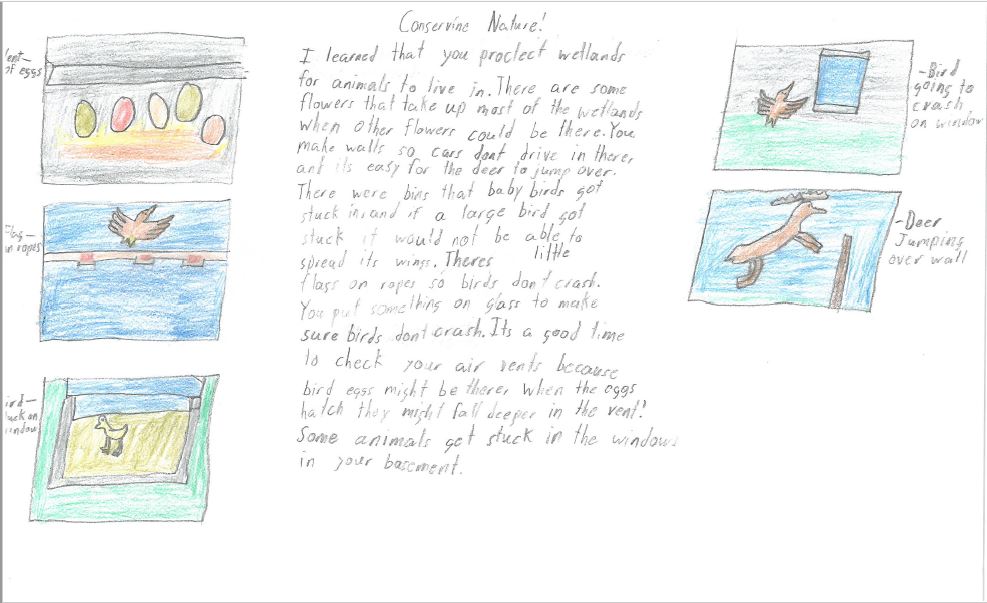 Conservine Nature!
I learned that you proctect wetlands
for animals to live in. There are some
flowers that take up most of the wetlands
when other flowers could be there. You
make walls so cars dont drive in there,
and its easy for the deer to jump over.
There were bins that baby birds got
stuck in, and if a large bird got
stuck it would not be able to
spread its wings. Theres little
flags on ropes so birds don't crash.
You put something on glass to make
sure birds dont crash. Its a good time
to check your air vents because
bird eggs might be there, when the eggs
hatch they might fall deeper in the vent!
Some animals get stuck in the windows
in your basement.
vent-
of eggs
Flag
on ropes
ird-
uck on
indow
-Bird
going to
crash
on window
-Deer
Jumping
over wall